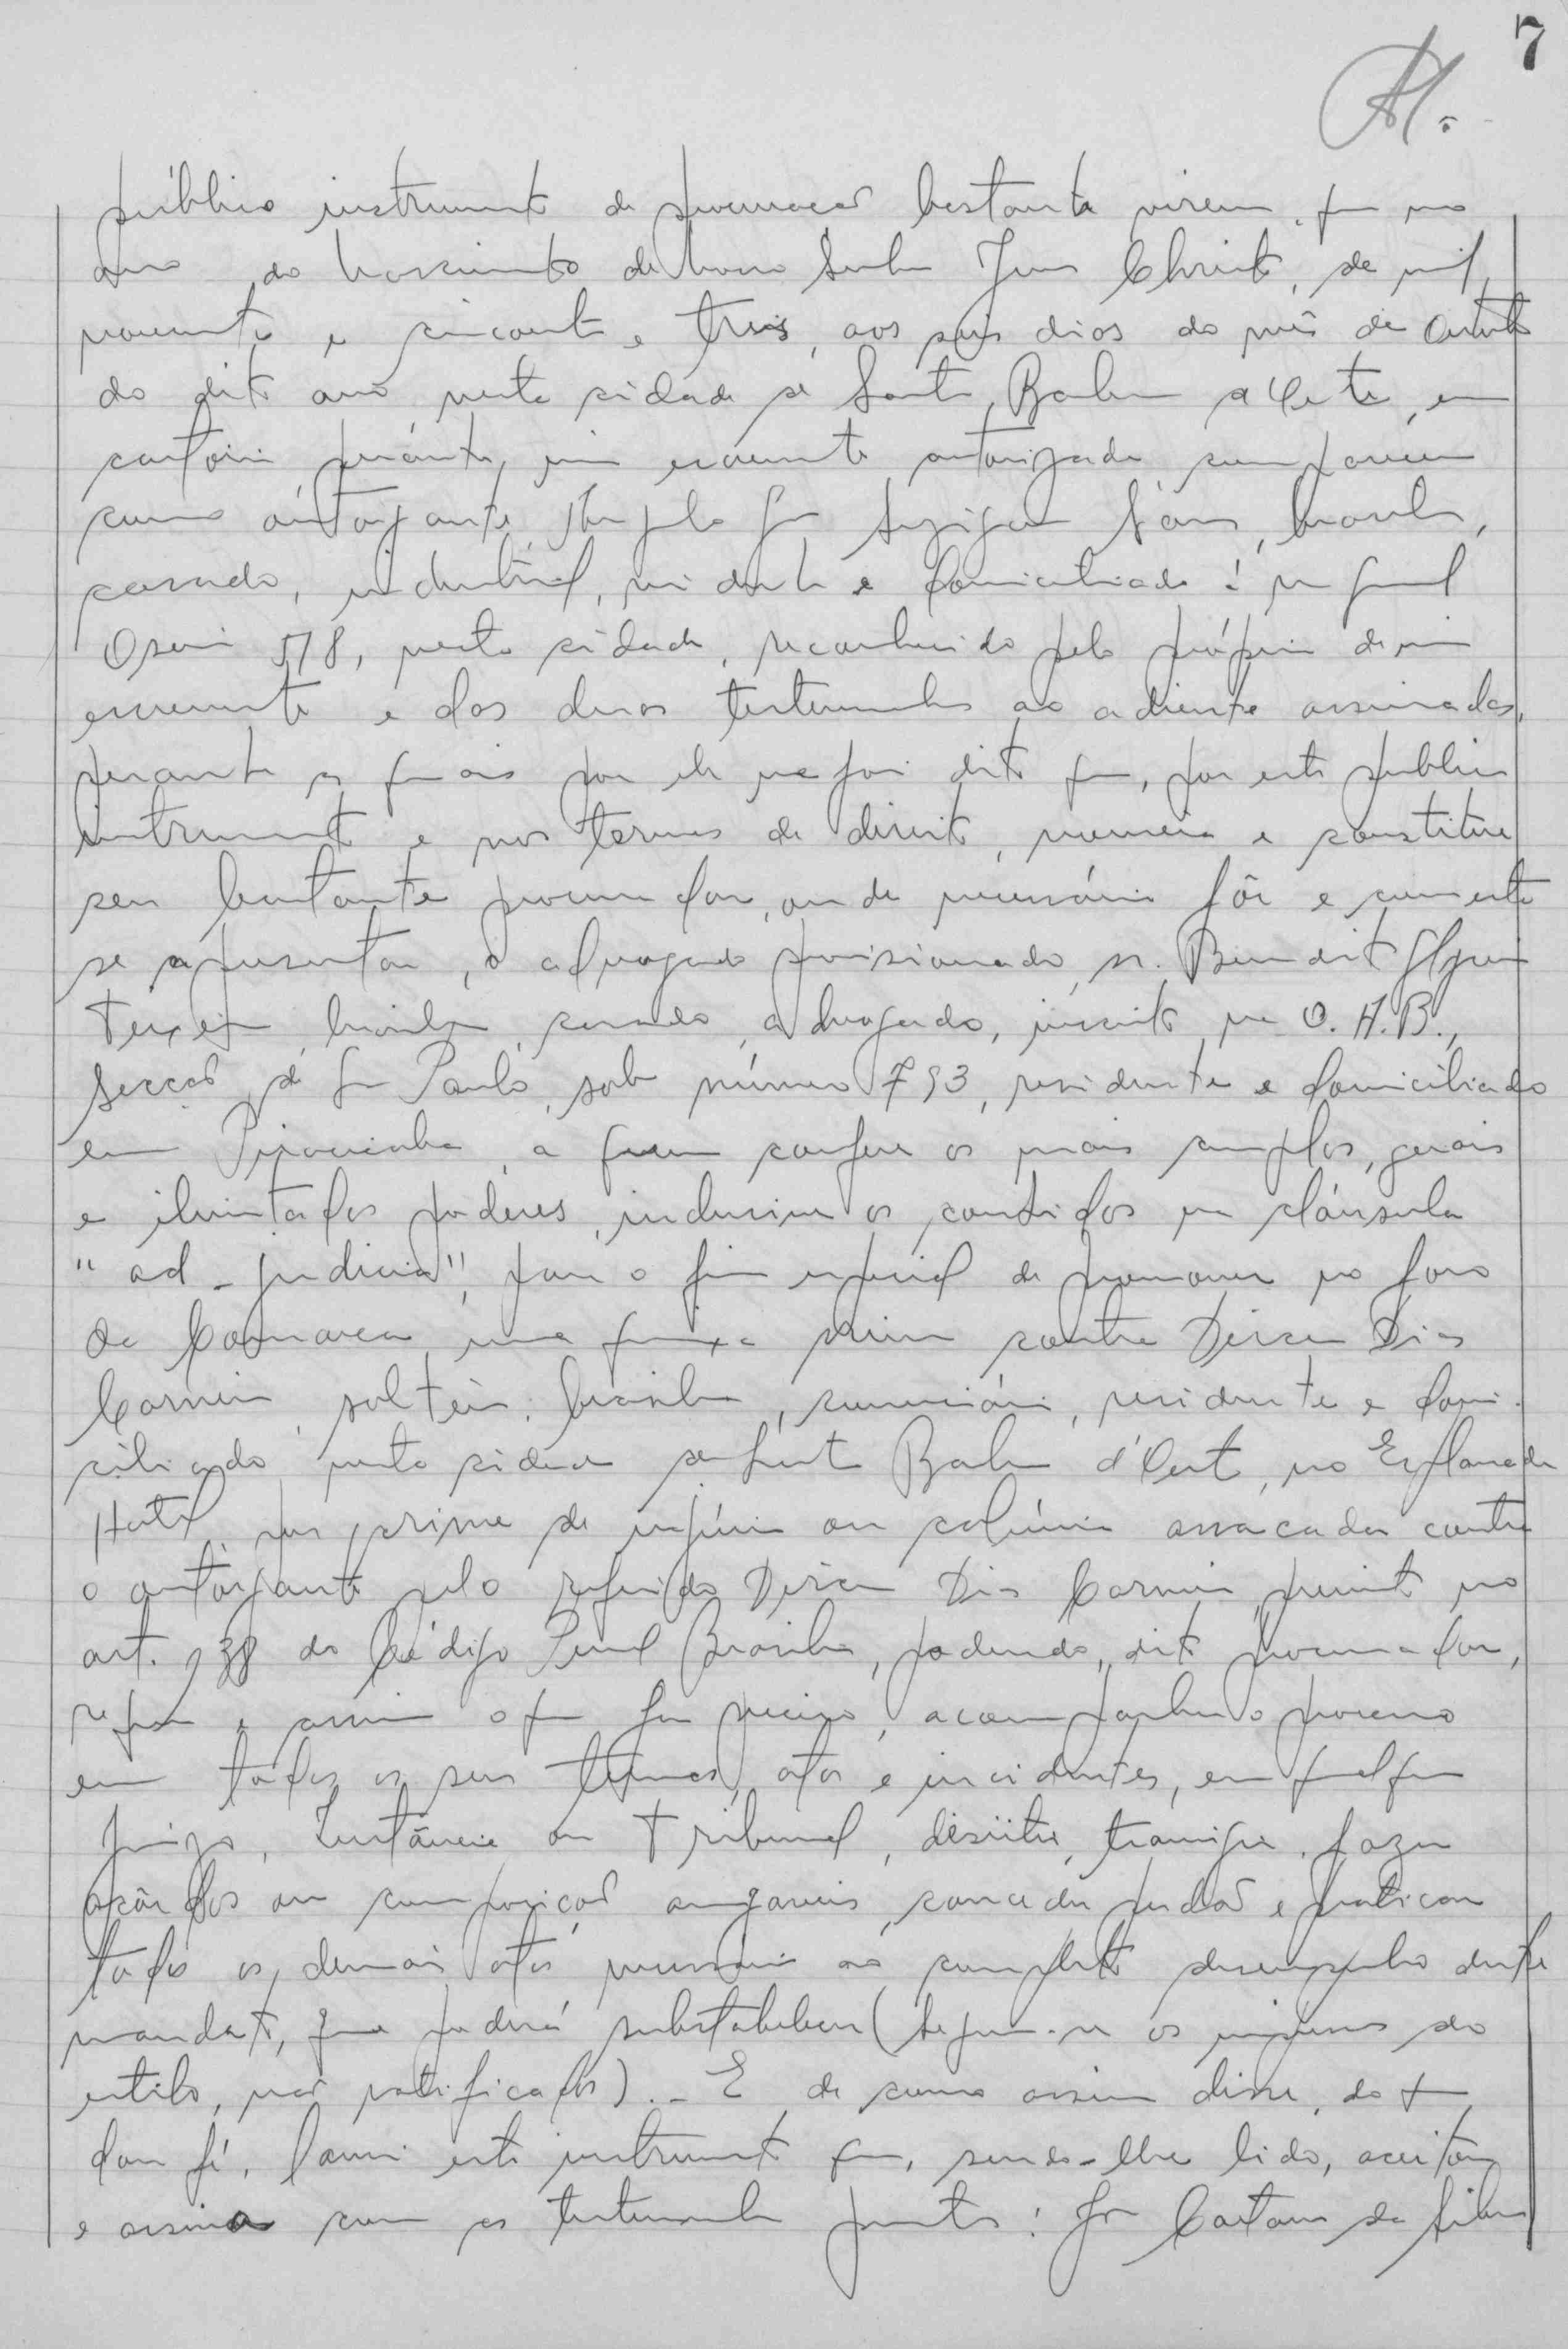 7
público instrumento de procuração bastante virem, que no
ano do Nascimento de Nosso Senhor Jesus Christo, de mil
novecentos e cincoenta e treis, aos seis dias do mês de
do dito ano nesta cidade de Santa Barbara d'Oeste, em
cartório, perante mim escrevente autorizado compareceu
como outorgante brasileiro,
casado, industrial, residente e domiciliado á rua General
Osorio 578, nesta cidade, reconhecido pelo próprio de mim
escrevente e das duas testemunhas ao adiante assinadas,
perante as quais por ele me foi dito que, por este publico
instrumento e nos termos de direito, nomeia e constitue
seu bastante procurador, onde necessário fôr e com esta
se apresentar, o advogado provisionado, sr. Benedito
Teixeira brasileiro, casado, advogado, inscrito na O.A.B.,
Secção de São Paulo, sob número 793, residente e domiciliado
em Piracicaba, a quem confere os mais amplos, gerais
e ilimitados poderes, inclusive os contidos na cláusula
"ad-judicia", para o fim especial de promover no foro
da Comarca uma queixa crime contra Dirceu Dias
Carneiro, solteiro, brasileiro, residente e domi-
ciliado nesta cidade de Santa Barbara d'Oeste, no Esplanada
Hotel, por crime de injúria ou calúnia assacadas contra
o outorgante pelo referido Dirceu Dias Carneiro, previsto no
art. 138 do Código Penal Brasileiro, podendo, dito procurador,
e assinar o que for preciso, acompanhar o processo
em todos os seus termos, atos e incidentes, em qualquer
Juizo, Instância ou Tribunal, desistir, transigir, fazer
acôrdos ou composição amigaveis, conceder perdão e praticar
todos os demais atos necessarios ao completo desempenho deste
mandato, que poderá substabelecer (Seguem-se os impressos do
estilo, não ratificados).- E de como assim disse, do que
dou fé, lavrei este instrumento que, sendo-lhe lido, aceitou
e assina com as testemunhas presentes: José Caetano da Silva